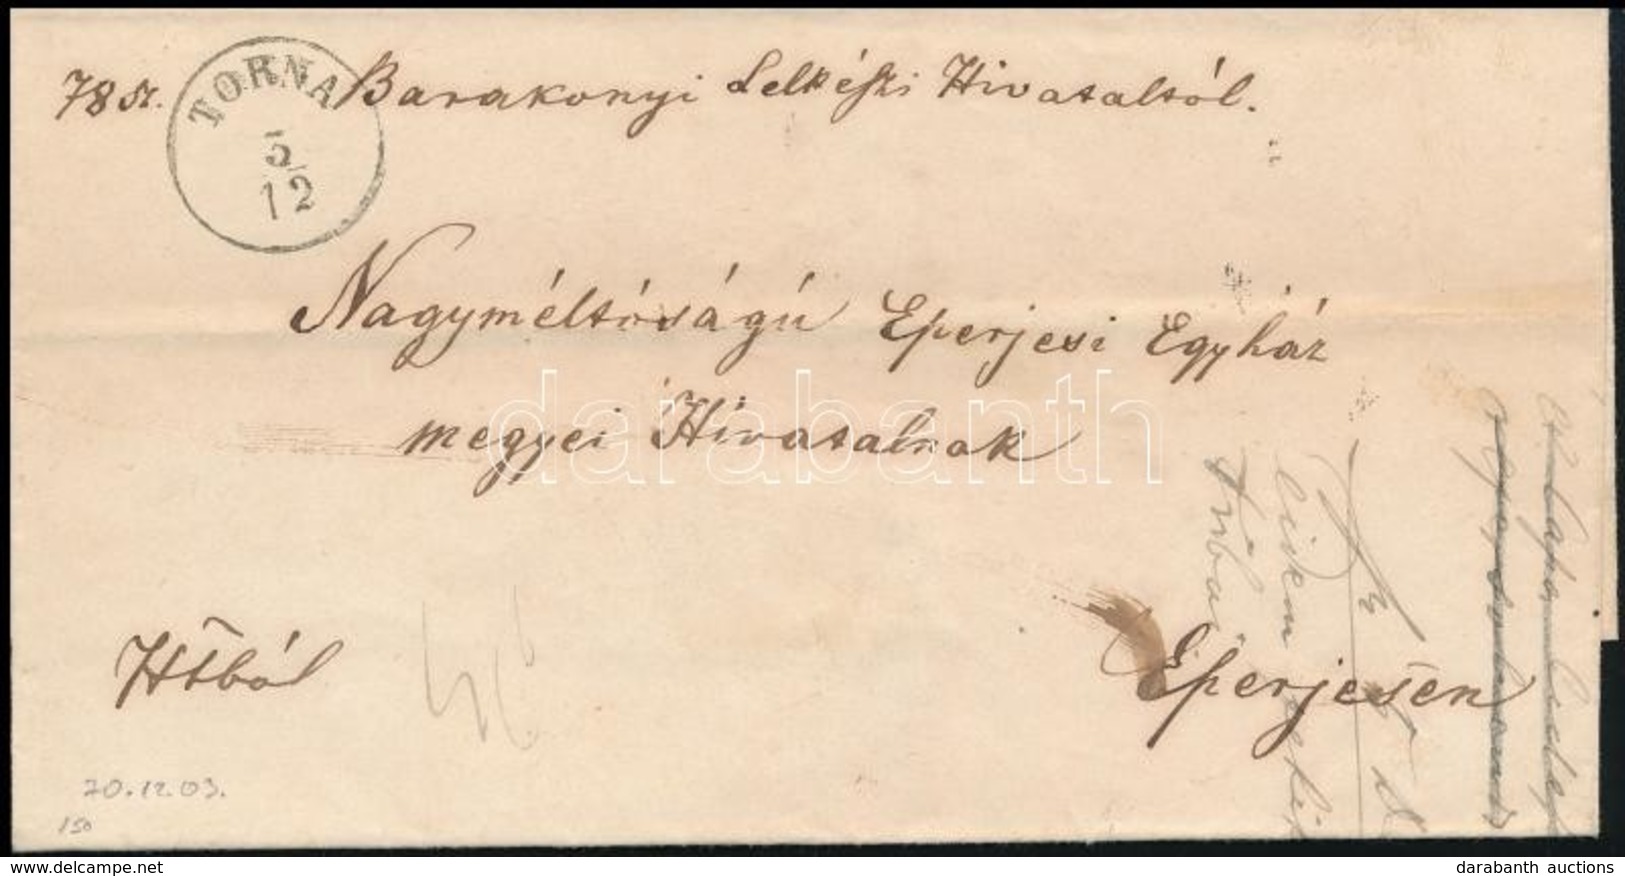 78 sz. Barakonyi Lelkészi Hivataltól.
TORNA
5/
12
Nagyméltóságú Eperjesi Egyház
megyei Hivatalnak
darabanth
Eperjesen
Hŭból
70.12.03.
150
www.delcampe.net
darabanth auctions